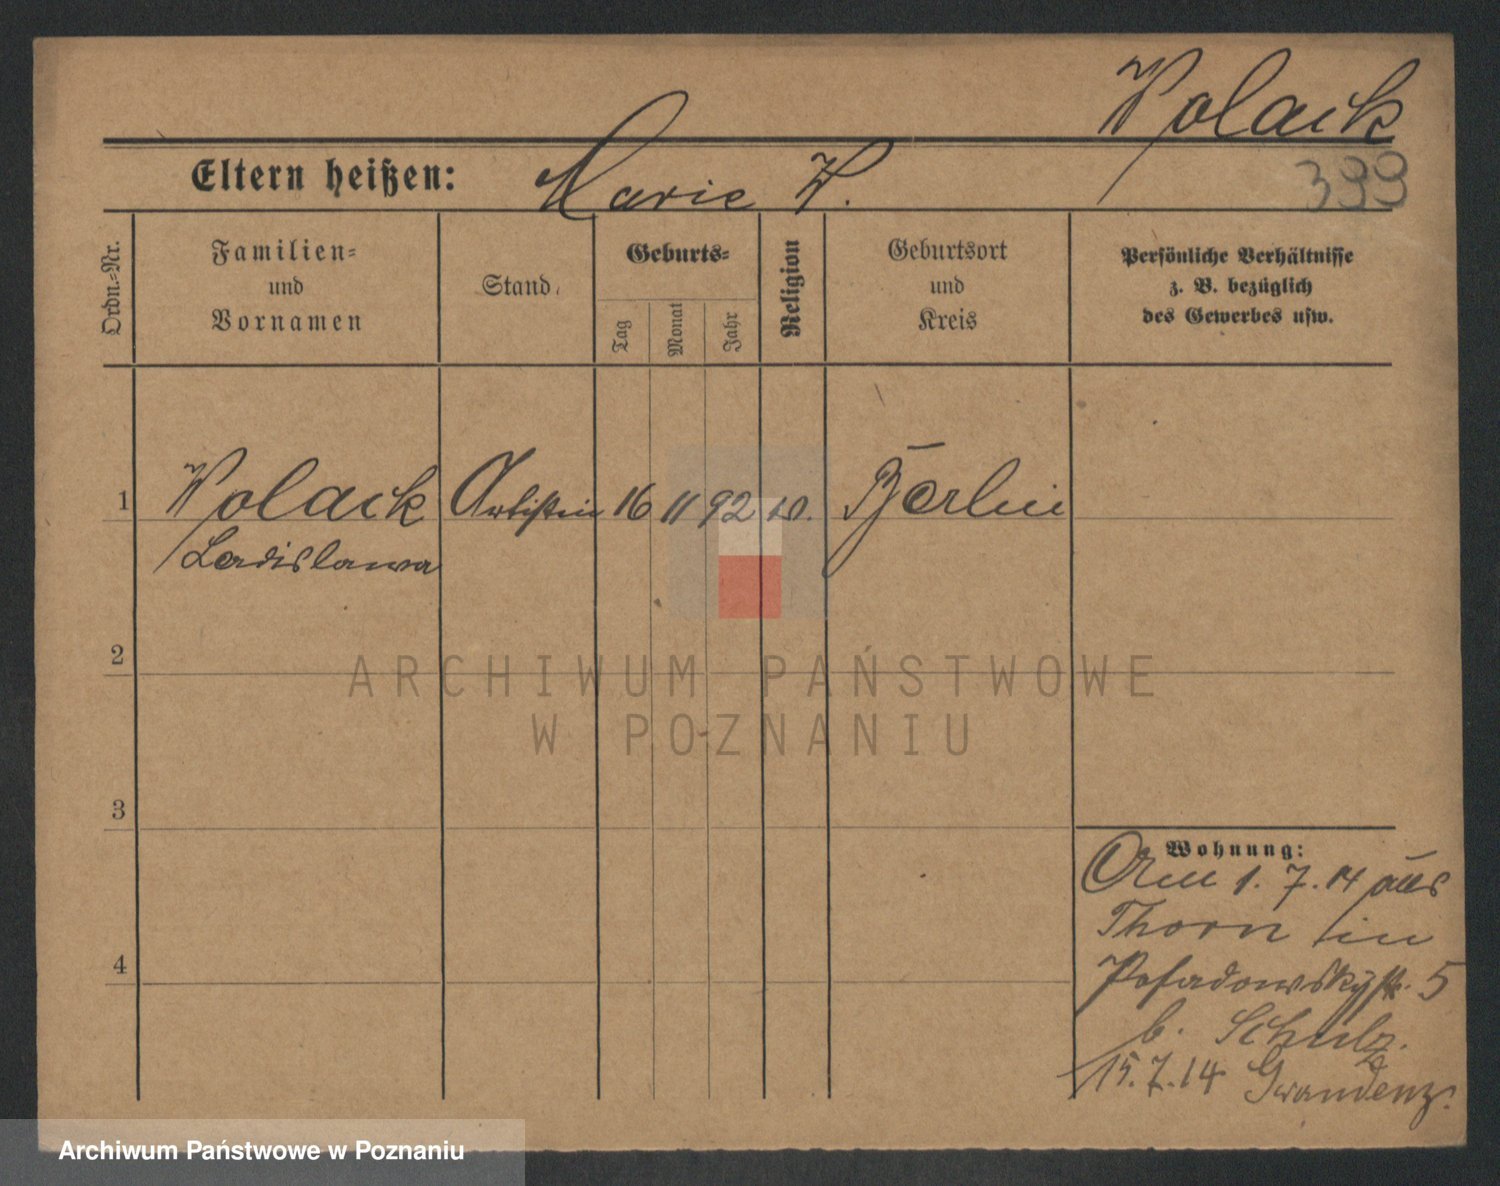 Wolack
399
Eltern heißen: Marie W.
Ordn.-Nr.
Familien- und Vornamen
Stand.
Geburts-
Tag
Monat
Jahr
Religion
Geburtsort und Kreis
Persönliche Verhältnisse
z. B. bezüglich
des Gewerbes usw.
1 Wolack Artistin 16 11 92 Berlin
Ladislawa
2
3
4
Wohnung:
1.7.14 aus
Thorn in
Posadowskystr. 5
b. Schulz.
15.7.14 Graudenz.
ARCHIWUM PAŃSTWOWE
W POZNANIU
Archiwum Państwowe w Poznaniu